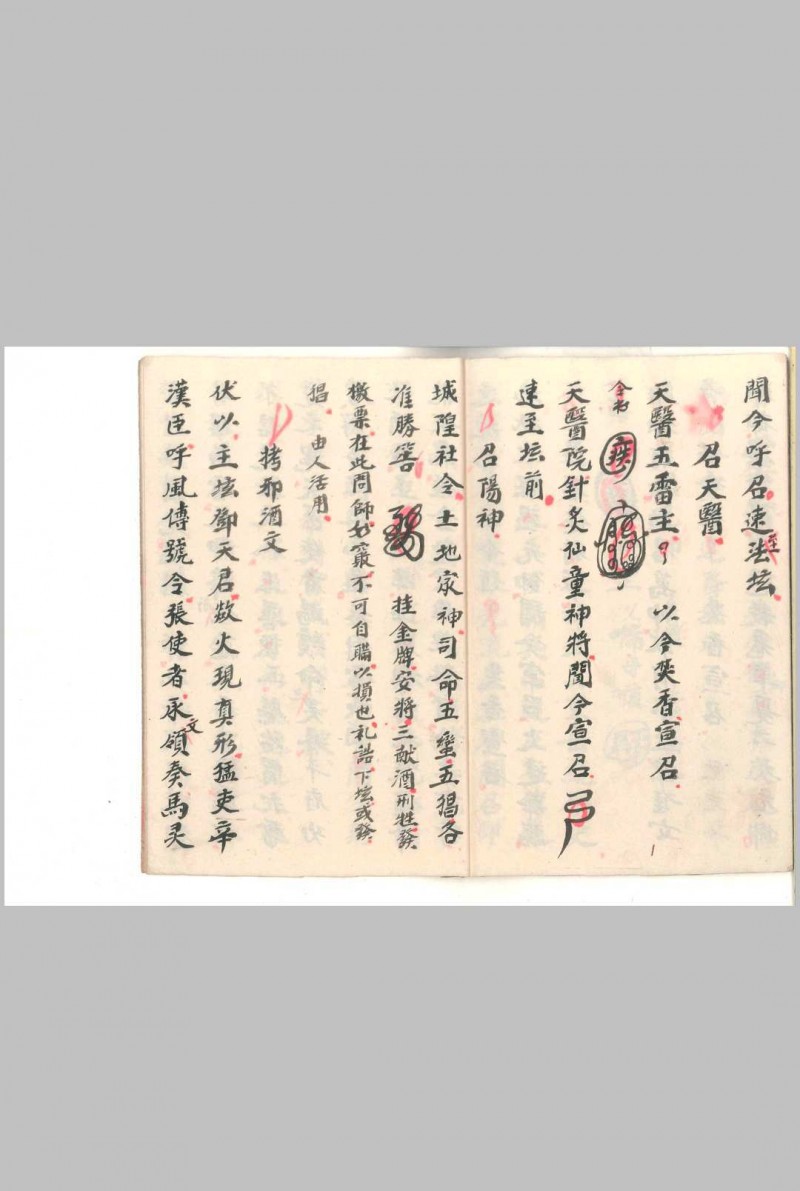 聞今呼召速至法坛
召天醫
天醫五雷主 以今焚香宣召
疾
天醫院針炙仙童神將聞今宣召
速至坛前
召陽神
城隍社令土地家神司命五蛮五猖各
准勝筶 挂金牌安將三献酒刑牲發
檄票在此問師 不可自瞞以損也礼誥下坛或發
猖 由人活用
拷邪酒文
伏以主坛鄧天君欻火現真形猛吏辛
漢臣呼風傳號令張使者承文領奏馬灵